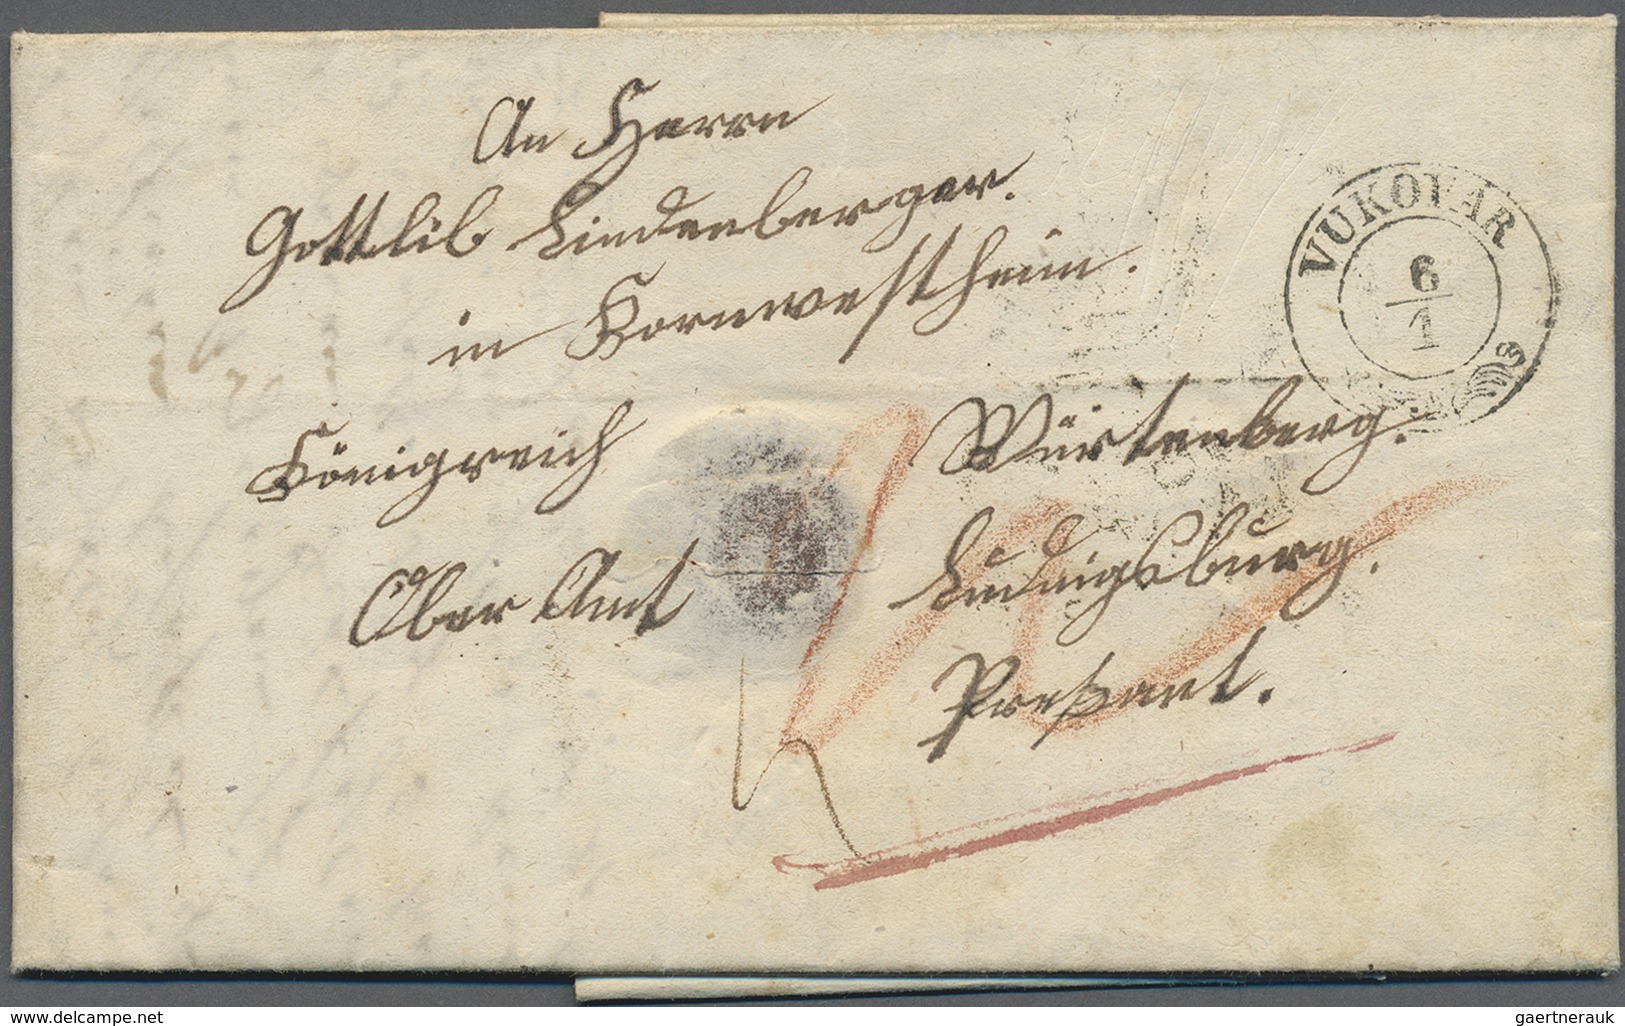 An Herrn
Gottlib Lindenberger.
in Kornwestheim.
Königreich Würtenberg.
Ober Amt Ludwigsburg.
Preßant.
VUKOVAR
6
1
www.delcampe.net
gaertnerauk